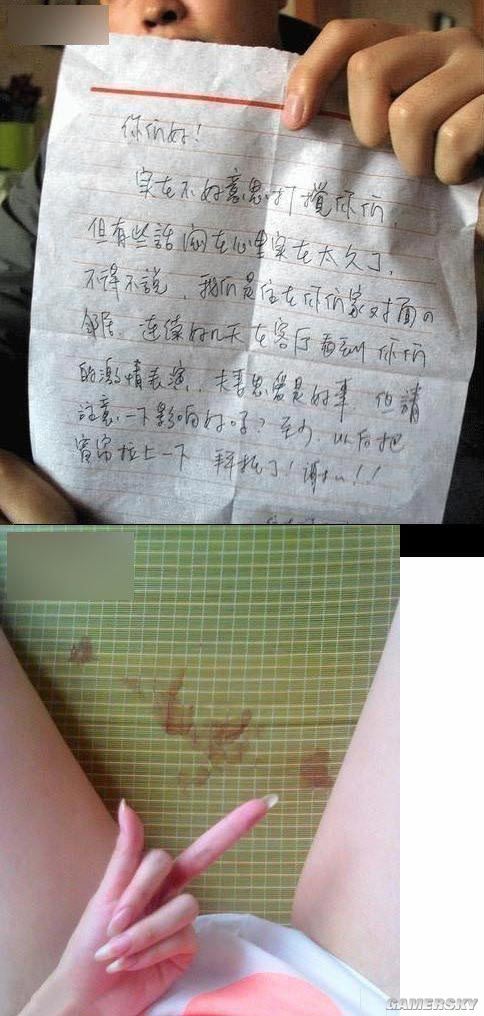 你们好!
实在不好意思打搅你们,
但有些話闷在心里实在太久了,
不得不說,我们是住在你们家对面の
邻居.连续好几天在客厅看到你们
的激情表演,夫妻恩爱是好事,但請
注意一下影响好吗?至少,以后把
窗帘拉上一下 拜托了!谢谢!!
GAMERSKY